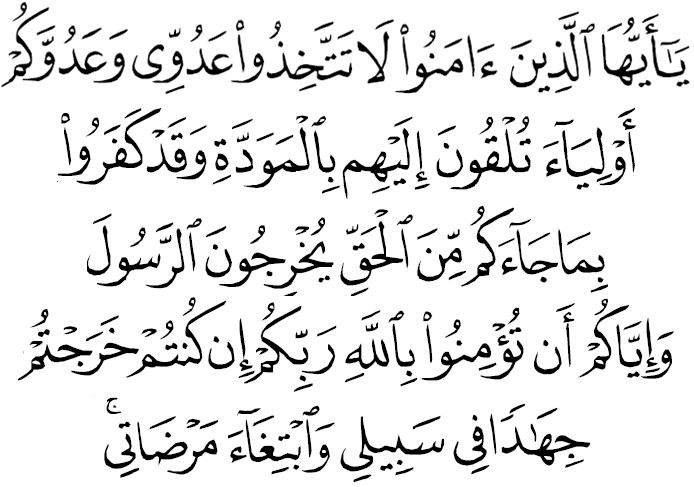 يَـٰٓأَيُّهَا ٱلَّذِينَ ءَامَنُوا۟ لَا تَتَّخِذُوا۟ عَدُوِّى وَعَدُوَّكُمْ
أَوْلِيَآءَ تُلْقُونَ إِلَيْهِم بِٱلْمَوَدَّةِ وَقَدْ كَفَرُوا۟
بِمَا جَآءَكُم مِّنَ ٱلْحَقِّ يُخْرِجُونَ ٱلرَّسُولَ
وَإِيَّاكُمْ أَن تُؤْمِنُوا۟ بِٱللَّهِ رَبِّكُمْ إِن كُنتُمْ خَرَجْتُمْ
جِهَـٰدًا فِي سَبِيلِي وَٱبْتِغَآءَ مَرْضَاتِي ۚ